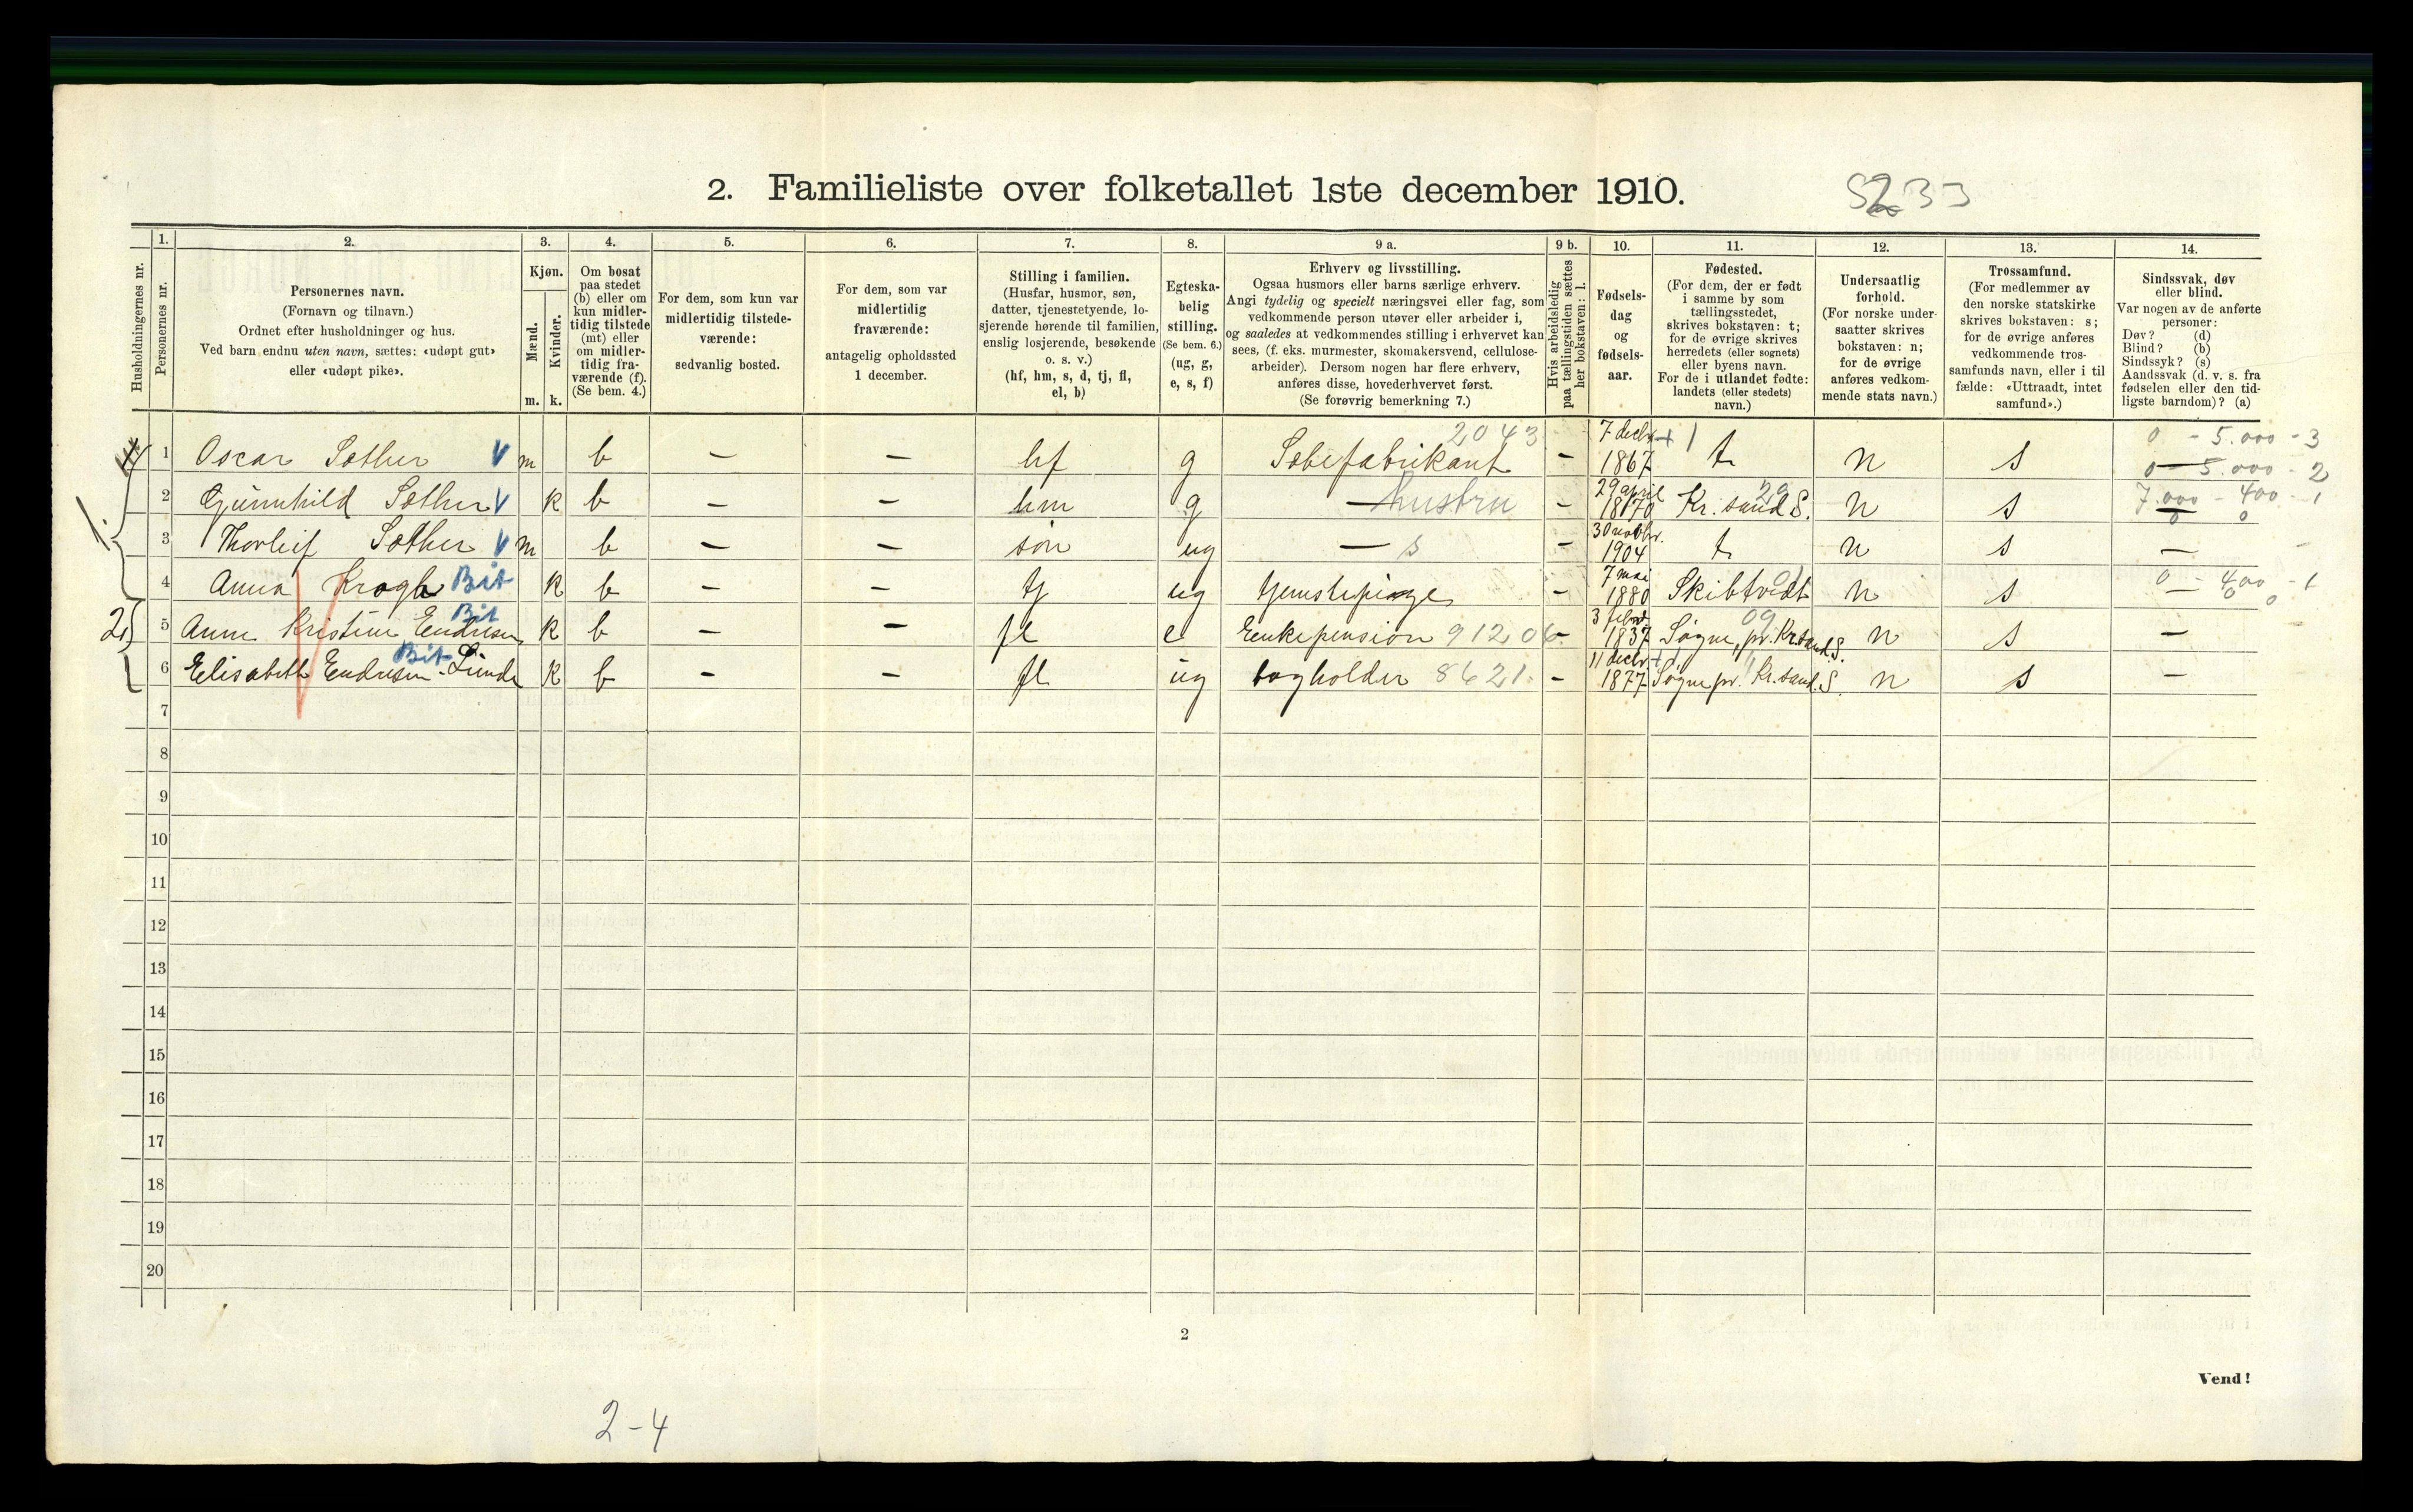 2. Familieliste over folketallet 1ste december 1910.
5233
Husholdningernes nr.
1.
Personernes nr.
2.
Personernes navn.
(Fornavn og tilnavn.)
Ordnet efter husholdninger og hus.
Ved barn endnu uten navn, sættes: «udøpt gut»
eller «udøpt pike».
3.
Kjøn.
Mænd.
Kvinder.
m. k.
4.
Om bosat
paa stedet
(b) eller om
kun midler-
tidig tilstede
(mt) eller
om midler-
tidig fra-
værende (f).
(Se bem. 4.)
5.
For dem, som kun var
midlertidig tilstede-
værende:
sedvanlig bosted.
6.
For dem, som var
midlertidig
fraværende:
antagelig opholdssted
1 december.
7.
Stilling i familien.
(Husfar, husmor, søn,
datter, tjenestetyende, lo-
sjerende hørende til familien,
enslig losjerende, besøkende
o. s. v.)
(hf, hm, s, d, tj, fl,
el, b)
8.
Egteska-
belig
stilling.
(Se bem. 6.)
(ug, g,
e, s, f)
9 a.
Erhverv og livsstilling.
Ogsaa husmors eller barns særlige erhverv.
Angi tydelig og specielt næringsvei eller fag, som
vedkommende person utøver eller arbeider i,
og saaledes at vedkommendes stilling i erhvervet kan
sees, (f. eks. murmester, skomakersvend, cellulose-
arbeider). Dersom nogen har flere erhverv,
anføres disse, hovederhvervet først.
(Se forøvrig bemerkning 7.)
9 b.
Hvis arbeidsledig
paa tællingstiden sættes
her bokstaven: l.
10.
Fødsels-
dag
og
fødsels-
aar.
11.
Fødested.
(For dem, der er født
i samme by som
tællingsstedet,
skrives bokstaven: t;
for de øvrige skrives
herredets (eller sognets)
eller byens navn.
For de i utlandet fødte:
landets (eller stedets)
navn.)
12.
Undersaatlig
forhold.
(For norske under-
saatter skrives
bokstaven: n;
for de øvrige
anføres vedkom-
mende stats navn.)
13.
Trossamfund.
(For medlemmer av
den norske statskirke
skrives bokstaven: s;
for de øvrige anføres
vedkommende tros-
samfunds navn, eller i til
fælde: «Uttraadt, intet
samfund».)
14.
Sindssvak, døv
eller blind.
Var nogen av de anførte
personer:
Døv? (d)
Blind? (b)
Sindssyk? (s)
Aandssvak (d. v. s. fra
fødselen eller den tid-
ligste barndom)? (a)
1. 1 Oscar Sæther V m b — — hf g Sæbefabrikant 2043 – 7 decbr. 1867 + 1 t n s 0 – 5.000 – 3
0 – 5.000 – 2
2 Gunnhild Sæther V k b — — hm g — hustru – 29 april 1870 Kr.sand S. 20 n s 7.000 – 400 – 1
0 0
3 Thorleif Sæther V m b — — søn ug — s – 30 novbr. 1904 t n s —
4 Anna Krogh Bit k b — — tj ug tjenestepige – 7 mai 1880 Skibtvedt 01 n s 0 – 400 – 1
— 0 0
2) 5 Anne Kristine Endresen Bit k b — — fl e Enkepension 91206 – 3 febr. 1837 Søgne, pr. Kr.sand.S. 09 n s —
6 Elisabeth Endresen Lunde Bit k b — — fl ug bogholder 8621. – 11 decbr. 1877 + Søgne pr. Kr.sand.S. n s —
7
8
9
10
11
12
13
14
15
16
17
18
19
20
2
Vend!
2-4